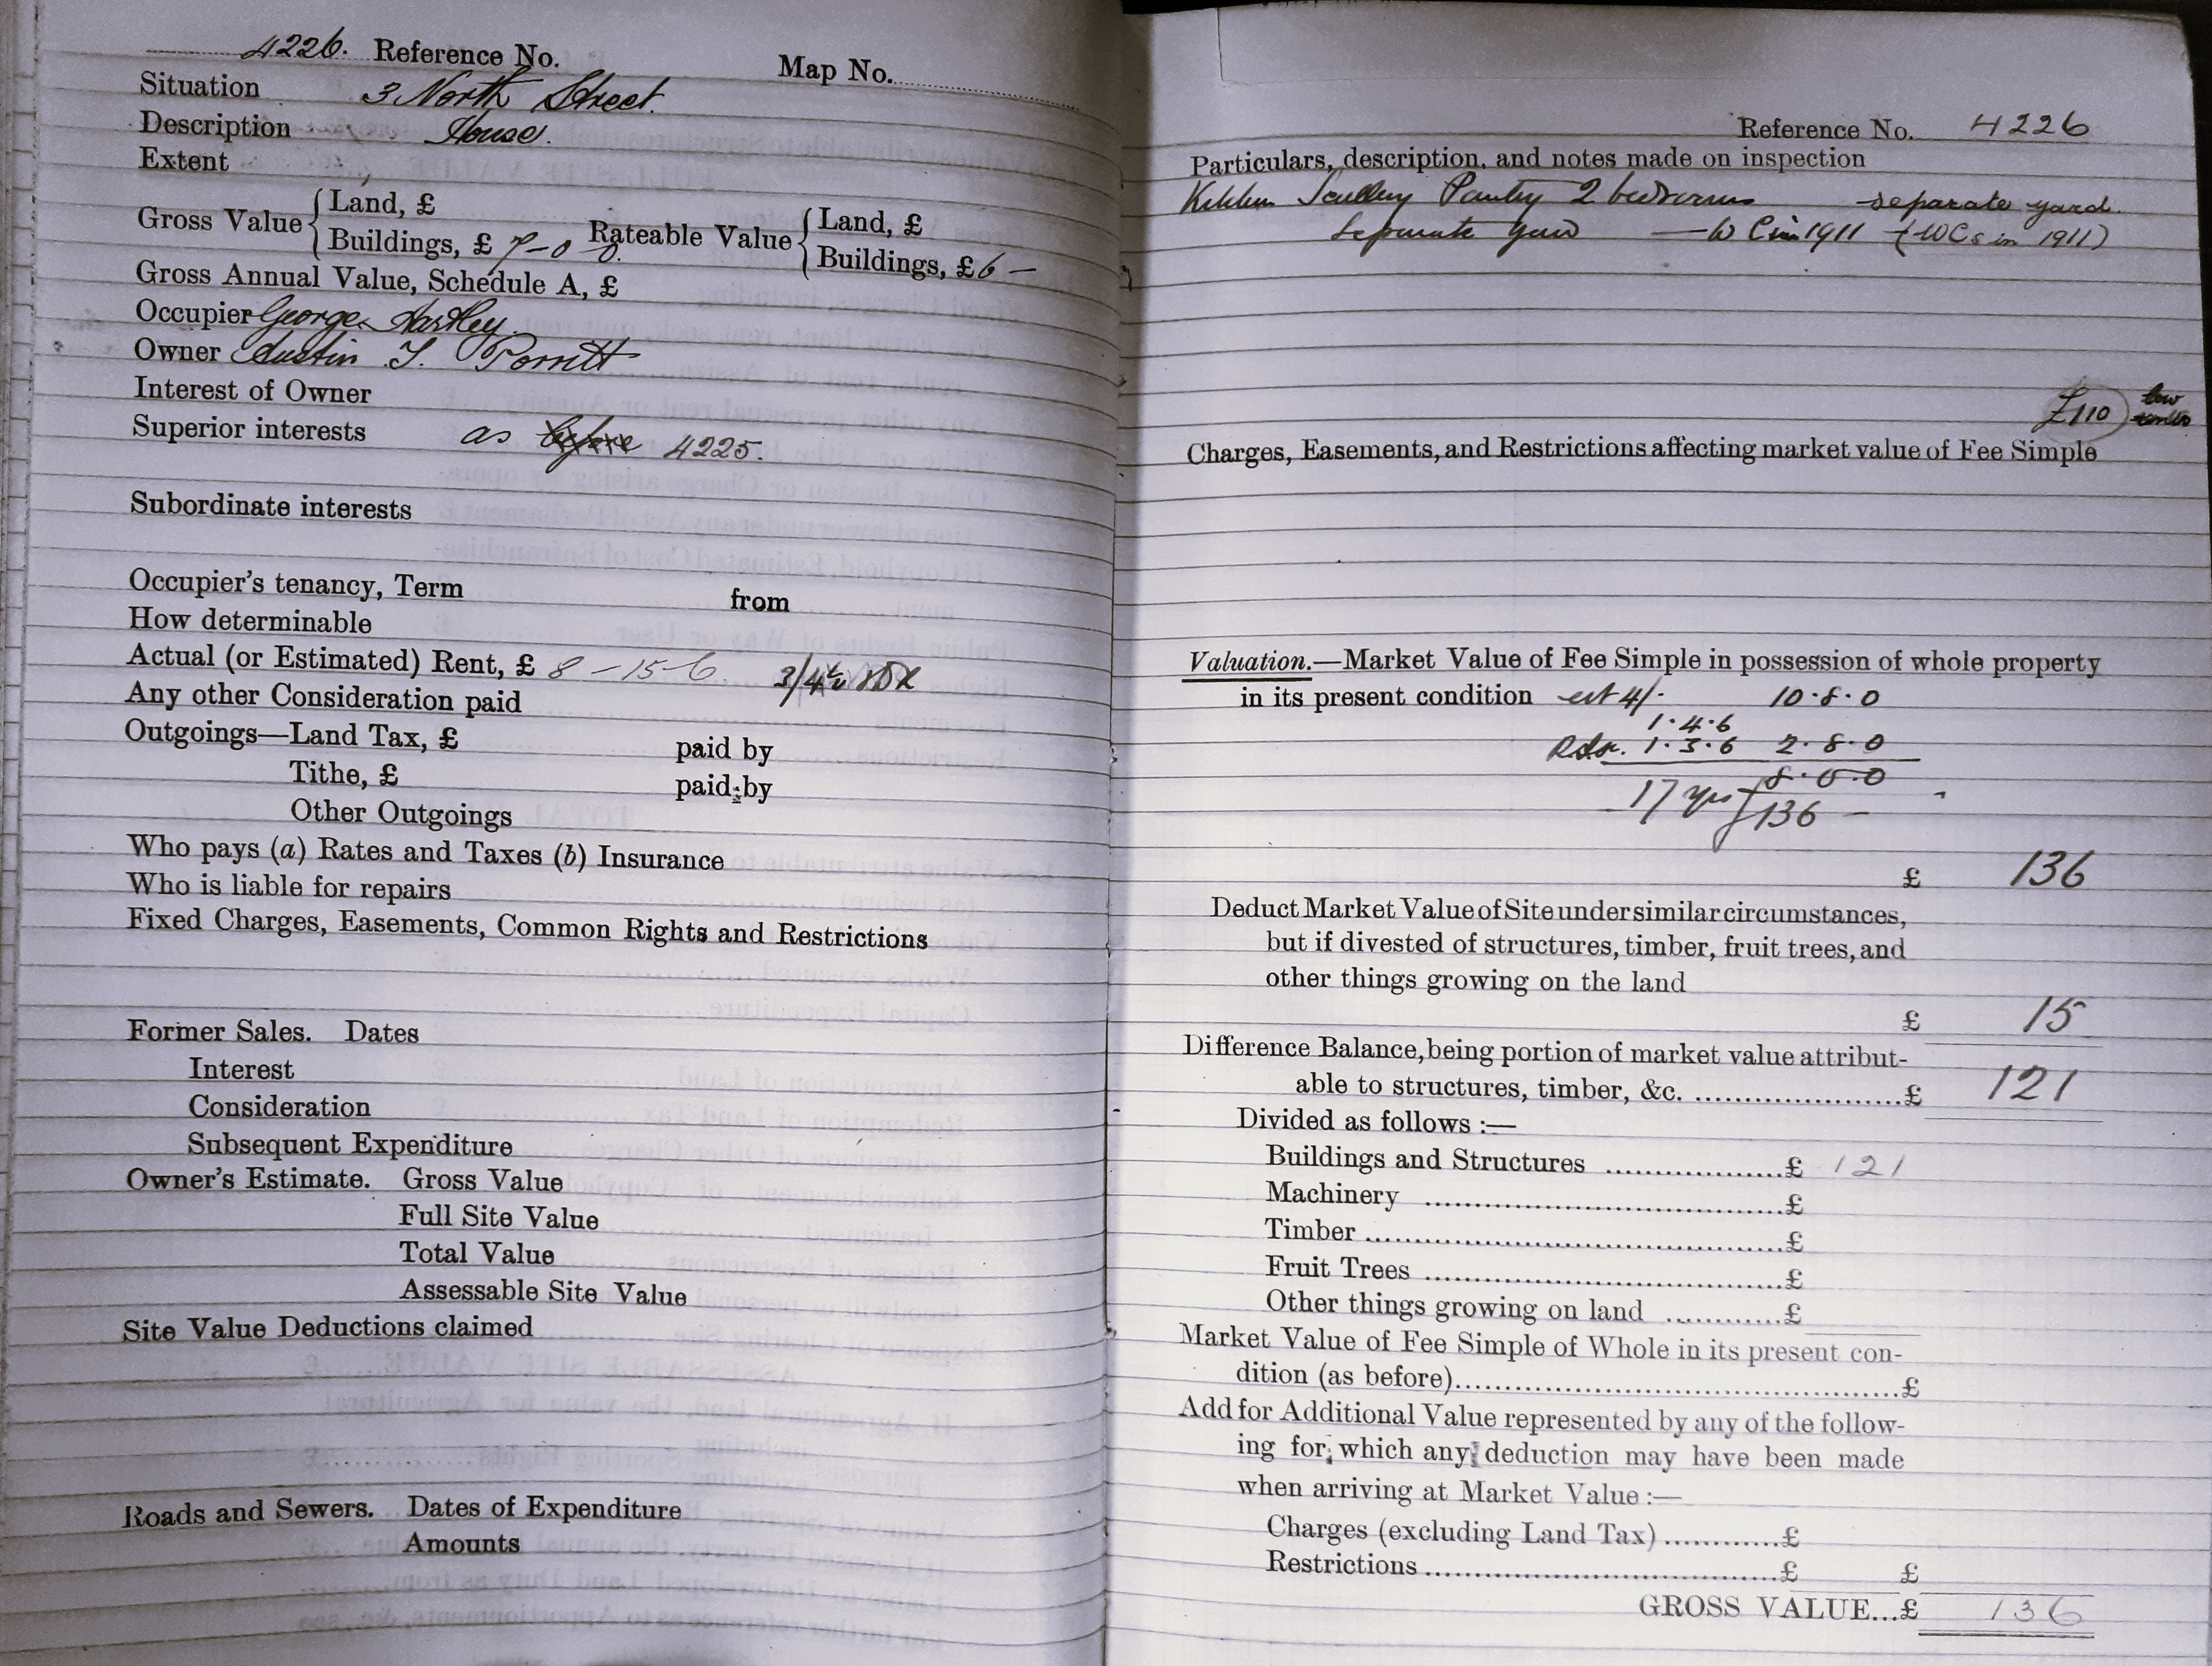 4226. Reference No. Map No.
Situation 3 North Street.
Description House.
Extent
Gross Value { Land, £ Rateable Value { Land, £
Buildings, £ 7-0-0. Buildings, £ 6 —
Gross Annual Value, Schedule A, £
Occupier George Hartley.
Owner Austin T. Porritt
Interest of Owner
Superior interests as before 4225.
Subordinate interests
Occupier's tenancy, Term from
How determinable
Actual (or Estimated) Rent, £ 8-15-6. 3/4½
Any other Consideration paid
Outgoings—Land Tax, £ paid by
Tithe, £ paid by
Other Outgoings
Who pays (a) Rates and Taxes (b) Insurance
Who is liable for repairs
Fixed Charges, Easements, Common Rights and Restrictions
Former Sales. Dates
Interest
Consideration
Subsequent Expenditure
Owner's Estimate. Gross Value
Full Site Value
Total Value
Assessable Site Value
Site Value Deductions claimed
Roads and Sewers. Dates of Expenditure
Amounts
Reference No. 4226
Particulars, description, and notes made on inspection
Kitchen Scullery Pantry 2 bedrooms separate yard.
Separate yard — WC in 1911 (WCs in 1911)
£110 low
Charges, Easements, and Restrictions affecting market value of Fee Simple
Valuation.—Market Value of Fee Simple in possession of whole property
in its present condition est 4/- 10.8.0
1.4.6
1.3.6 2.8.0
8.0.0
17 yrs 136 —
£ 136
Deduct Market Value of Site under similar circumstances,
but if divested of structures, timber, fruit trees, and
other things growing on the land
£ 15
Difference Balance, being portion of market value attribut-
able to structures, timber, &c. ....................£ 121
Divided as follows :—
Buildings and Structures ..................£ 121
Machinery ....................................£
Timber..........................................£
Fruit Trees ....................................£
Other things growing on land ............£
Market Value of Fee Simple of Whole in its present con-
dition (as before)............................................£
Add for Additional Value represented by any of the follow-
ing for which any deduction may have been made
when arriving at Market Value :—
Charges (excluding Land Tax)............£
Restrictions....................................£ £
GROSS VALUE...£ 136